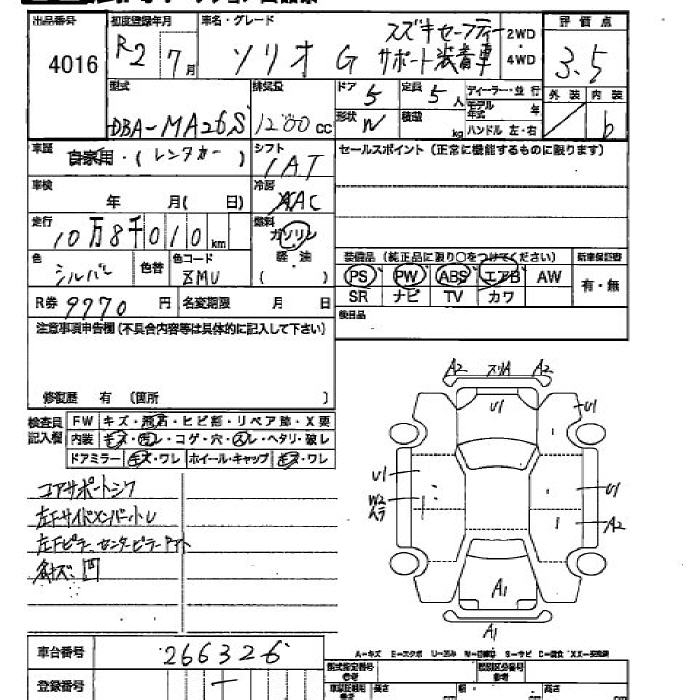 出品番号 4016
初度登録年月 R2 7月
車名・グレード ソリオ G スズキセーフティーサポート装着車
2WD・4WD
評価点 3.5
外装 内装 b
型式 DBA-MA26S
排気量 1200cc
ドア 5
定員 5人
形状 W
積載 kg
ディーラー・並行
モデル年式 年
ハンドル 左・右
車歴 自家用・(レンタカー)
シフト IAT
セールスポイント (正常に機能するものに限ります)
車検 年 月( 日)
冷房 AAC
走行 10万8千010km
燃料 ガソリン
軽油
( )
色 シルバー
色替
色コード ZMU
装備品 (純正品に限り○をつけてください)
新車保証書
PS PW ABS エアB AW
有・無
SR ナビ TV カワ
R券 9770円
名変期限 月 日
後日品
注意事項申告欄(不具合内容等は具体的に記入して下さい)
修復歴 有 (箇所 )
検査員記入欄
FW キズ・飛石・ヒビ割・リペア跡・X要
内装 キズ・汚レ・コゲ・穴・スレ・ヘタリ・破レ
ドアミラー キズ・ワレ ホイール・キャップ キズ・ワレ
コアサポートシワ
左Fサイドメンバー小U
A2 スリA A2
U1 U1
U1 U1
W2
A2
A1
A1
A-キズ E-エクボ U-凹み
車台番号 266326
登録番号 -
型式指定番号
類別区分番号
長さ 幅 高さ